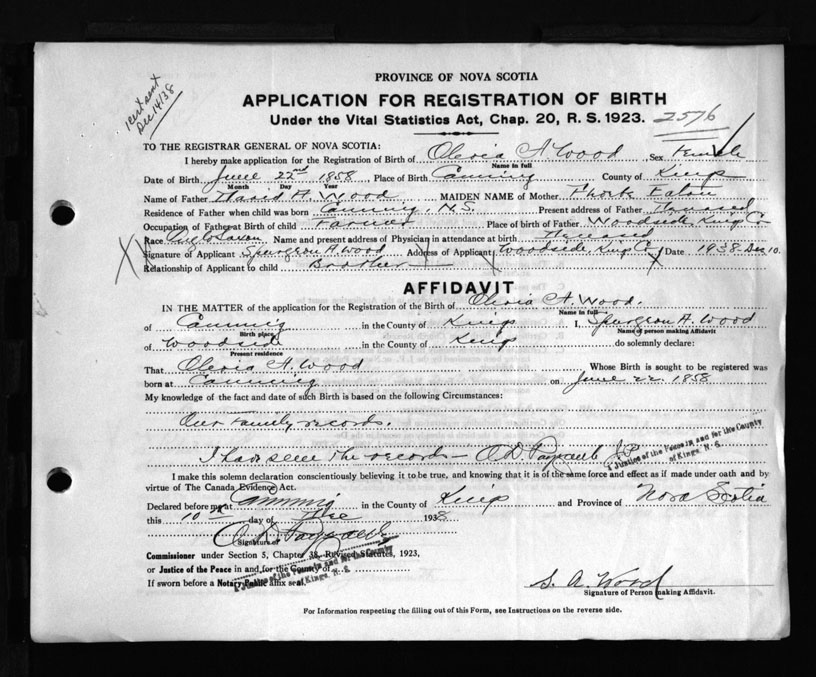 PROVINCE OF NOVA SCOTIA
cert sent
Dec 14/38
APPLICATION FOR REGISTRATION OF BIRTH
Under the Vital Statistics Act, Chap. 20, R. S. 1923.
2576
TO THE REGISTRAR GENERAL OF NOVA SCOTIA:
I hereby make application for the Registration of Birth of Olevia A Wood Sex Female
Name in full
Date of Birth June 22nd 1858 Place of Birth Canning County of Kings
Month Day Year
Name of Father David A. Wood MAIDEN NAME of Mother Eaton
Residence of Father when child was born Canning, N.S. Present address of Father Deceased
Occupation of Father at Birth of child Farmer Place of birth of Father Woodside, Kings Co
Race Anglo Saxon Name and present address of Physician in attendance at birth Deceased
Signature of Applicant Spurgeon A. Wood Address of Applicant Woodside Kings Co Date 1938 Dec 10.
Relationship of Applicant to child Brother
AFFIDAVIT
IN THE MATTER of the application for the Registration of the Birth of Olevia A. Wood.
Name in full
of Canning in the County of Kings I, Spurgeon A. Wood
Birth place Name of person making Affidavit
of Woodside in the County of Kings do solemnly declare:
Present residence
That Olevia A. Wood Whose Birth is sought to be registered was
born at Canning on June 22 1858
My knowledge of the fact and date of such Birth is based on the following Circumstances:
Our Family records.
I have seen the records — O. D. J.P.
A Justice of the Peace in and for the County
of Kings, N. S.
I make this solemn declaration conscientiously believing it to be true, and knowing that it is of the same force and effect as if made under oath and by
virtue of The Canada Evidence Act.
Declared before me at Canning in the County of Kings and Province of Nova Scotia
this 10th day of Dec 1938
O. D.
Signature of
Commissioner under Section 5, Chapter 38, Revised Statutes, 1923,
or Justice of the Peace in and for the County of
A Justice of the Peace in and for the County
of Kings, N. S.
If sworn before a Notary Public affix seal.
S. A. Wood
Signature of Person making Affidavit.
For Information respecting the filling out of this Form, see Instructions on the reverse side.